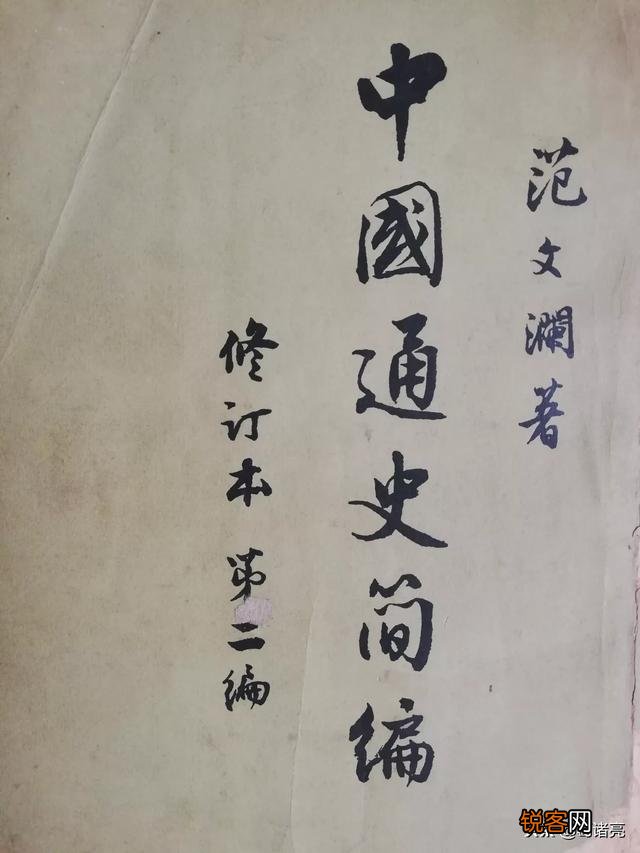 范文瀾著
中國通史简编
修订本 第二编
锐客网
诸亮